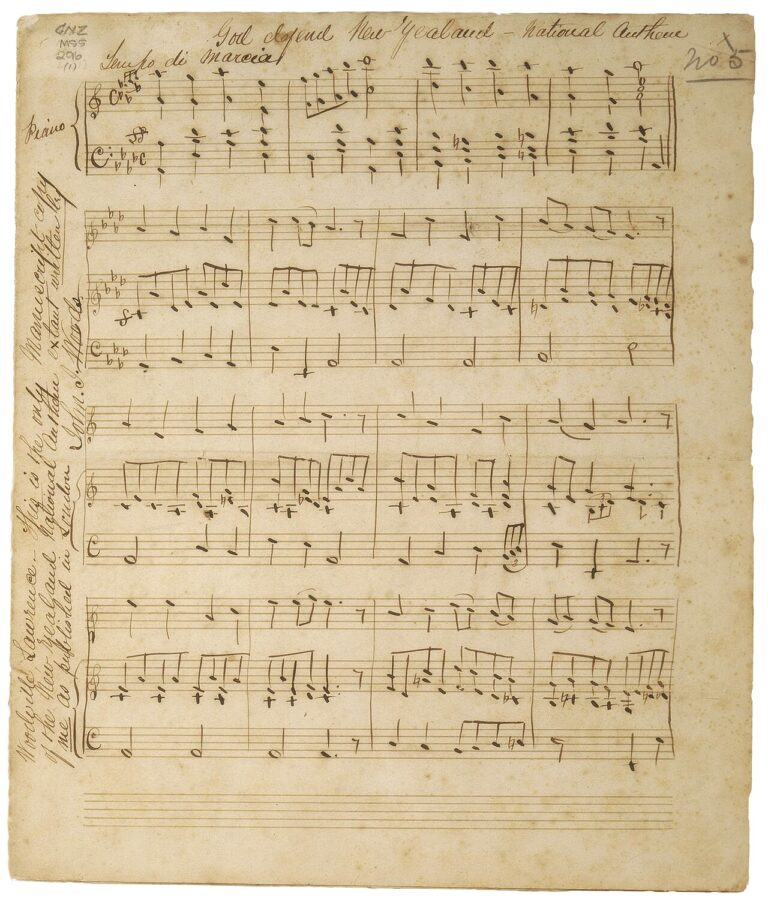 God defend New Zealand – National Anthem
GNZ
MSS
296
(1)
Tempo di marcia
no 5
Piano
Woodville Lawrence – This is the only Manuscript copy
of the New Zealand National Anthem extant written by
me as published in London John. J. Woods